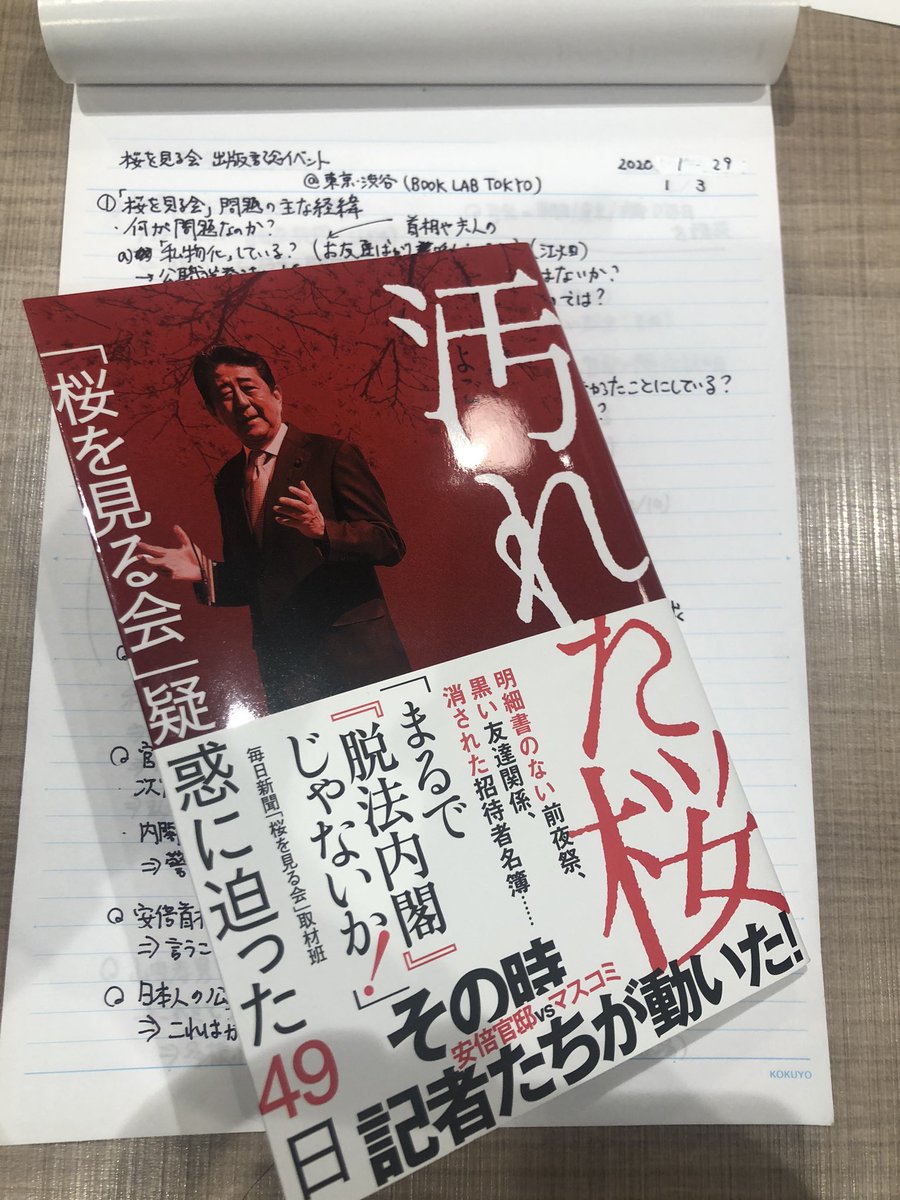 桜を見る会 出版記念イベント
2020 1 29
@東京・渋谷 (BOOK LAB TOKYO)
1 3
①「桜を見る会」問題の主な経緯
・何が問題なのか?
首相や夫人の
「私物化」している?
(お友達ばかり
はないか?
いては?
ことにしている?
?
Q
Q 官
次
・内閣
⇒ 警
Q 安倍首相
⇒ 言うこ
Q 日本人の公
⇒ これはか
KOKUYO
汚れた桜
よ
「桜を見る会」疑惑に迫った49日
明細書のない前夜祭、
黒い友達関係、
消された招待者名簿……
「まるで
『脱法内閣』
じゃないか!」
毎日新聞「桜を見る会」取材班
その時
安倍官邸vsマスコミ
記者たちが動いた!